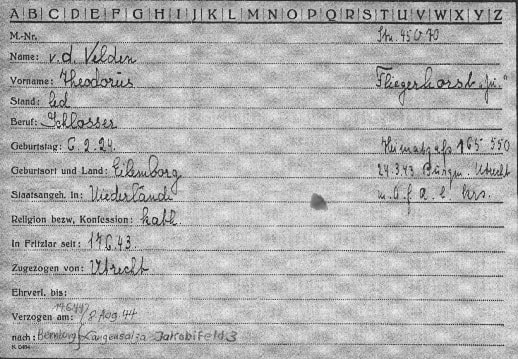 A B C D E F G H I J K L M N O P Q R S T U V W X Y Z
M.-Nr. Str. 450 70
Name: v. d. Velden
Vorname: Theodorus Fliegerhorst
Stand: led
Beruf: Schlosser
Geburtstag: 6. 2. 24. Heimatpaß 165 550
Geburtsort und Land: 24.3.43 Utrecht
Staatsangeh. in: Niederlände
Religion bezw. Konfession: kath
In Fritzlar seit: 17.6.43.
Zugezogen von: Utrecht
Ehrverl. bis:
Verzogen am: 8. Aug. 44
nach: Langensalza Jakobifeld 3